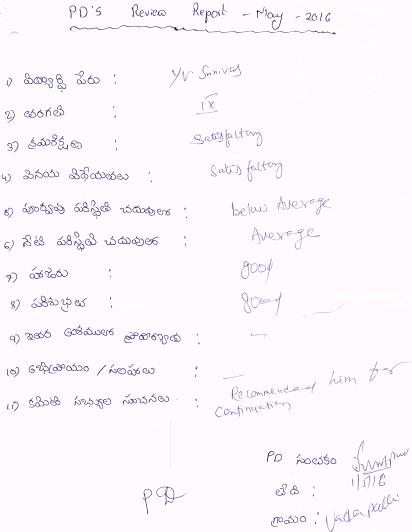 PD'S Review Report - May - 2016
1) విద్యార్థి పేరు : Y.V. Srinivas
2) తరగతి : IX
3) క్రమశిక్షణ : Satisfaltory
4) వినయ విధేయతలు : Satisfaltory
5) పూర్వపు పరిస్థితి చదువులో : below Average
6) నేటి పరిస్థితి చదువులో : Average
7) హాజరు : good
8) పరిశుభ్రత : good
9) ఇతర అంశములలో ప్రావీణ్యత : -
10) అభిప్రాయం / సలహాలు : -
11) కమిటి సభ్యుల సూచనలు : Recommended him for
continuation
PD సంతకం
తేది :
PD
గ్రామం :